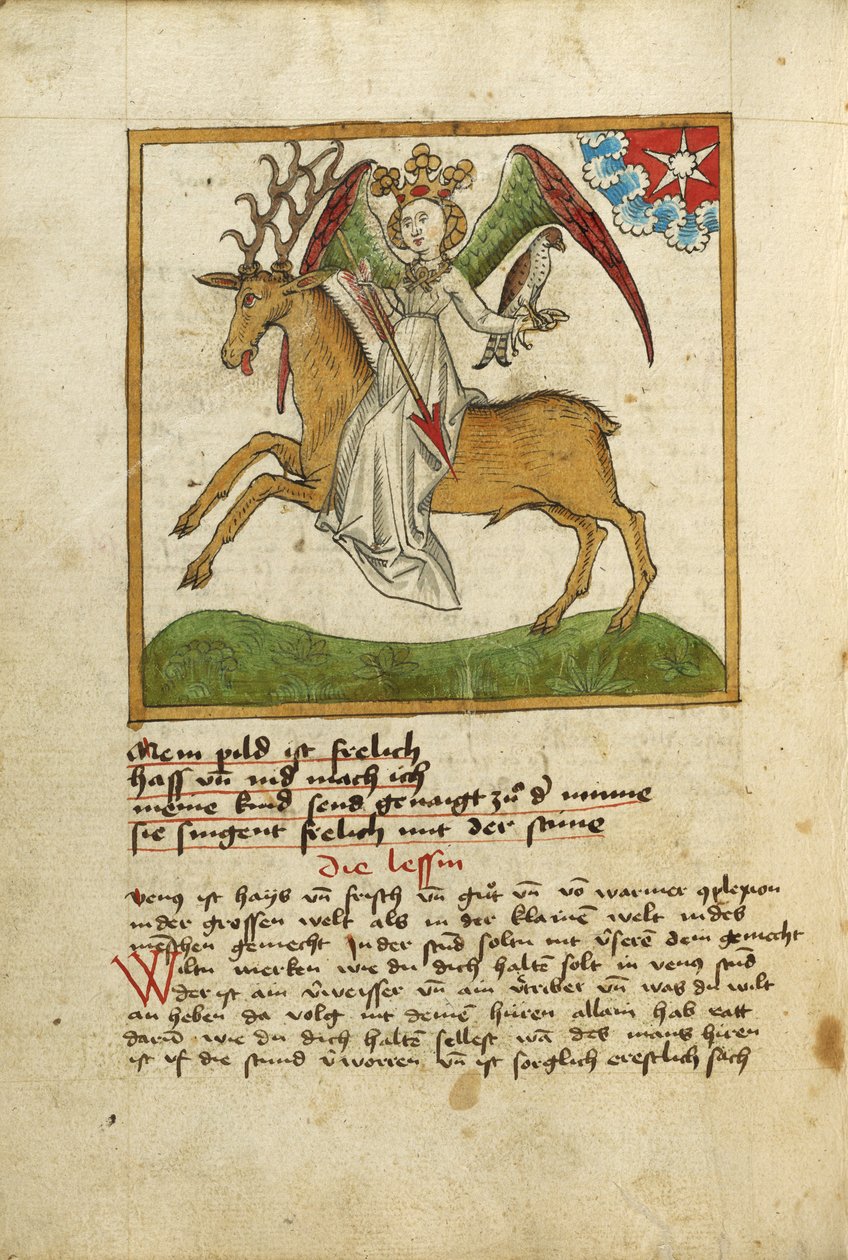 Mein pild ist frelich
hass vñ nid mach ich
meine kind send genaigt zů d' minne
sie singent frelich mit der stime
die lessin
Venus ist hays vñ frisch vñ gůt vñ võ warmer 9plexion
in der grossen welt als in der klainẽ welt in des
menschen gemecht In der stũd soltu nit v̂serẽ dein gemecht
Wiltu merken wie du dich haltẽ solt in venus stũd
der ist ain v̂weisser vñ ain v̂triber vñ was du wilt
an heben da volg nit deinẽ hiren allain hab ratt
darũ wie du dich haltẽ sellest wã des mans hiren
ist vf die stund v̂worren vñ ist sorglich sach